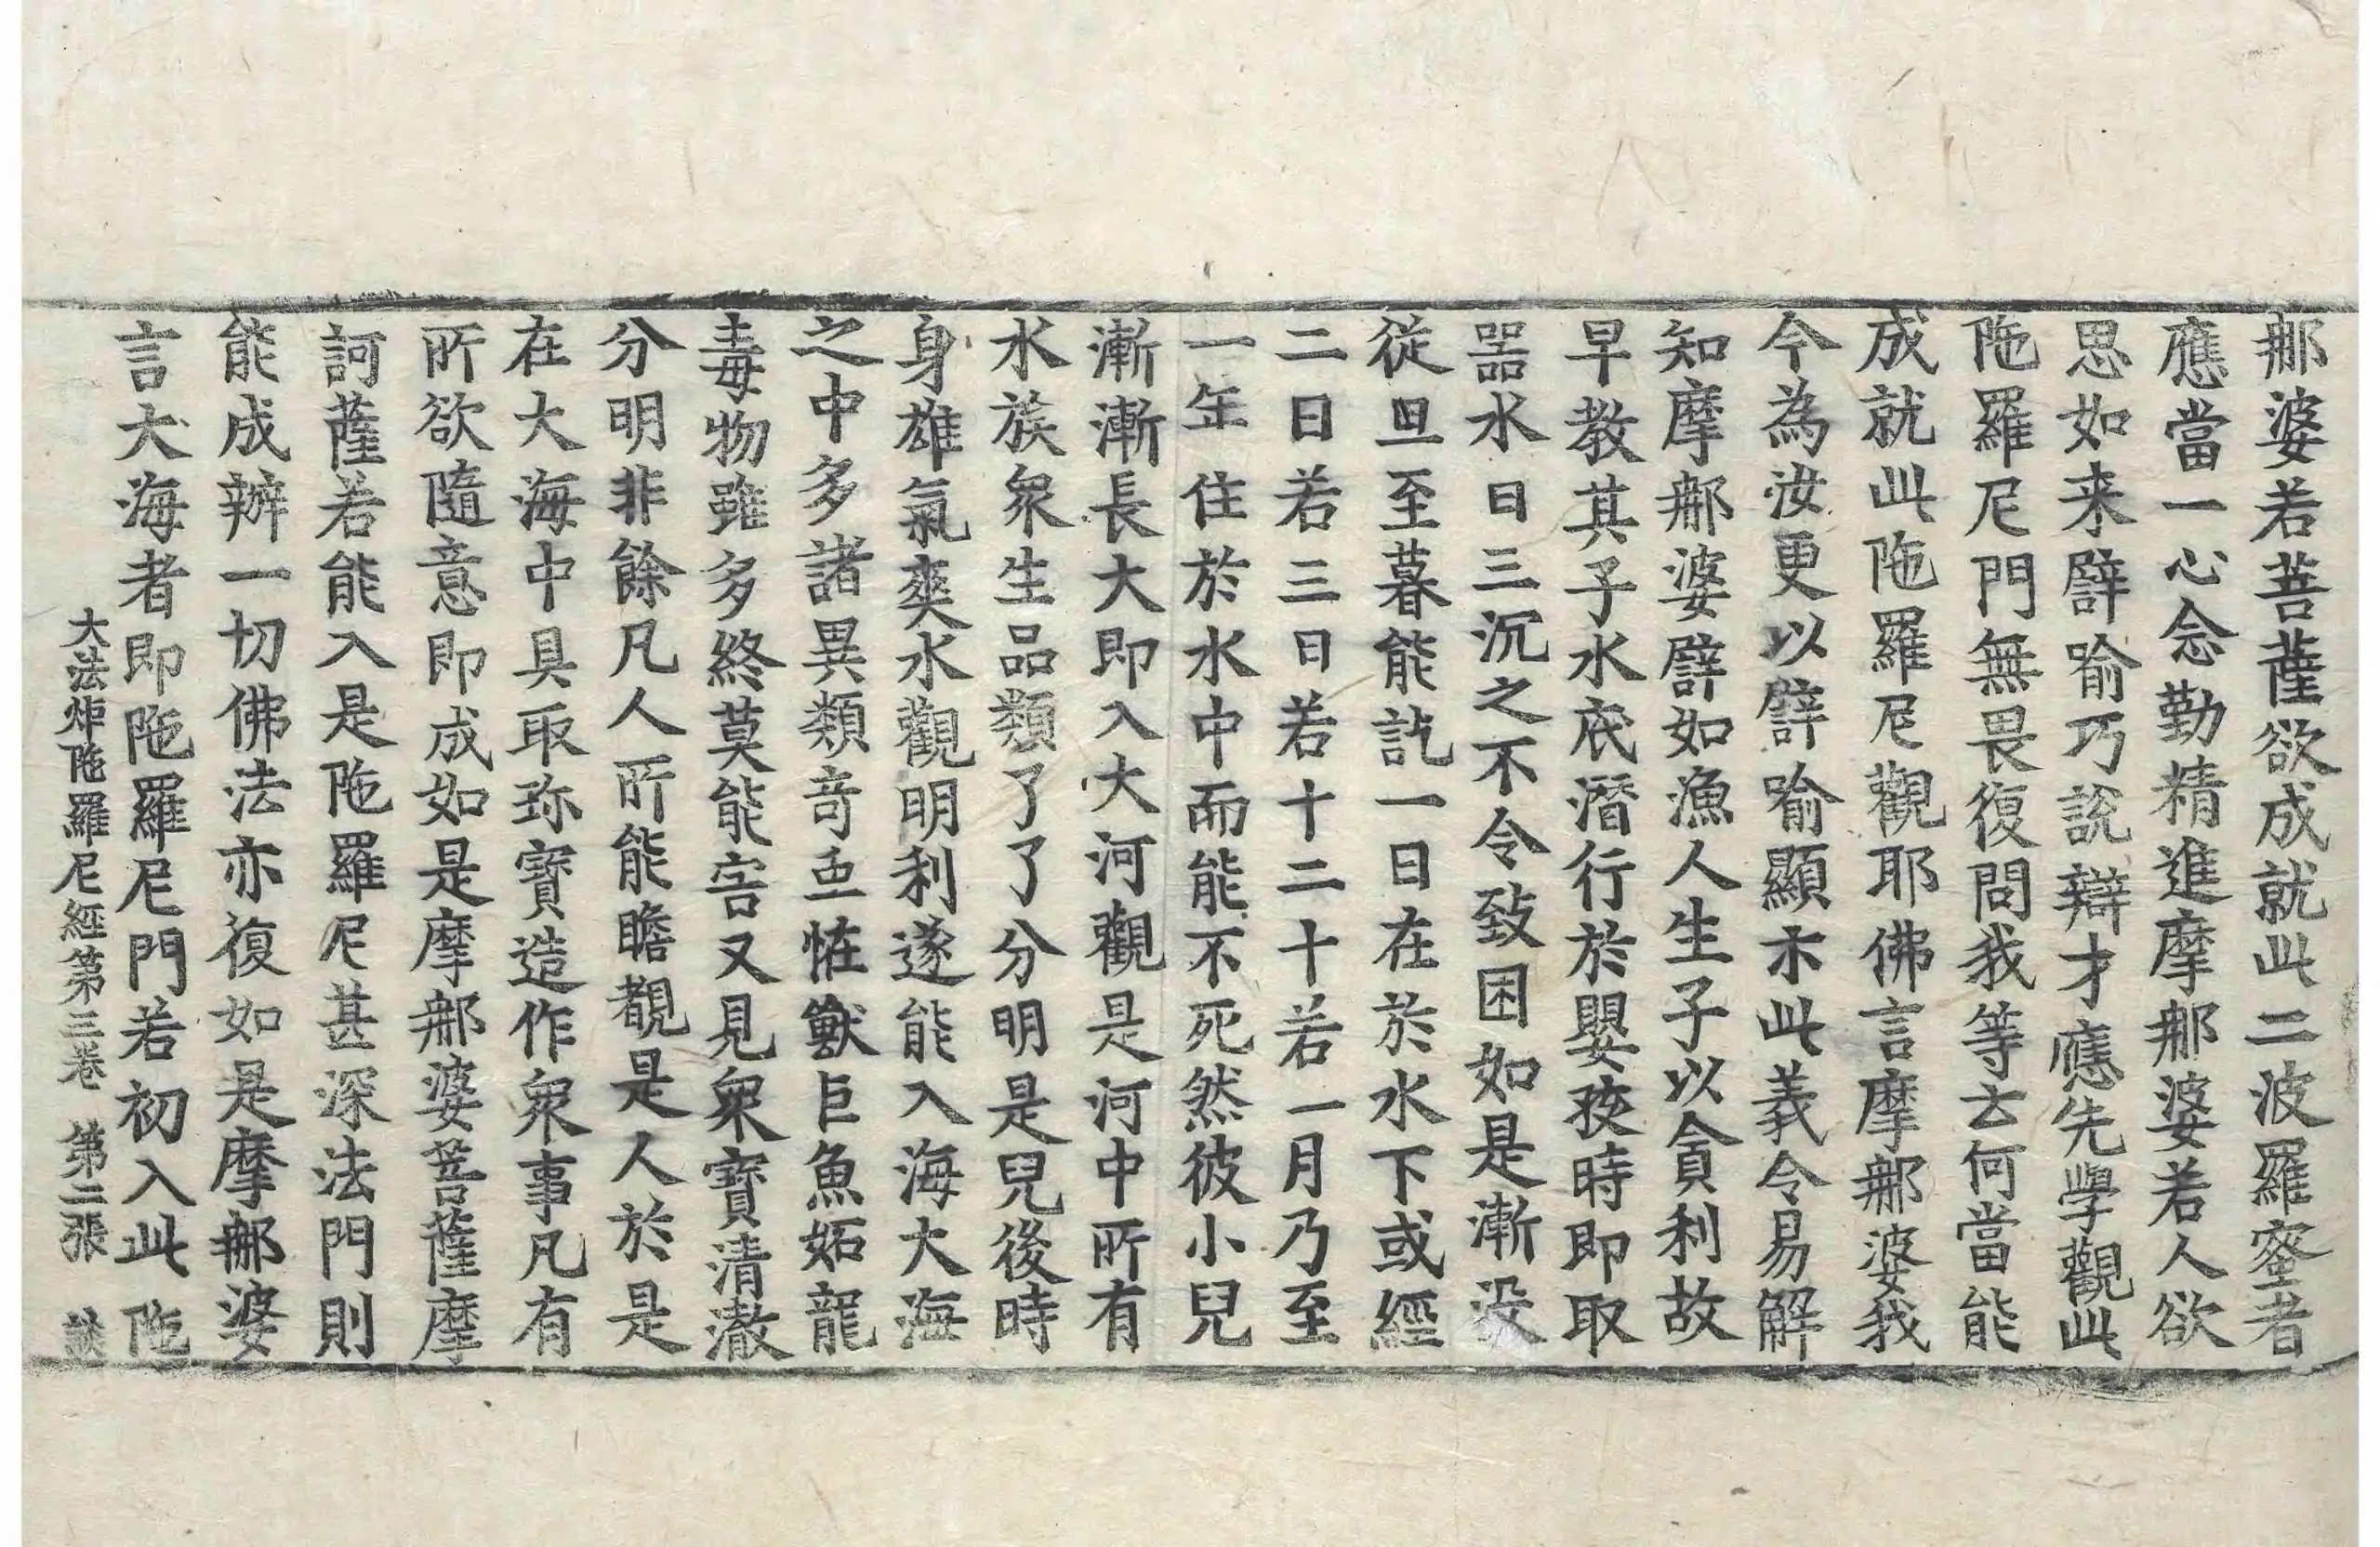 那婆若菩薩欲成就此二波羅蜜者
應當一心念勤精進摩那婆若人欲
思如来譬喻巧說辯才應先學觀此
陁羅尼門無畏復問我等云何當能
成就此陁羅尼觀耶佛言摩那婆我
今為汝更以譬喻顯示此義令易解
知摩那婆譬如漁人生子以貪利故
早教其子水底潛行於嬰孩時即取
器水日三沉之不令致困如是漸没
從旦至暮能訖一日在於水下或經
二日若三日若十二十若一月乃至
一年住於水中而能不死然彼小兒
漸漸長大即入大河觀是河中所有
水族衆生品類了了分明是兒後時
身雄氣爽水觀明利遂能入海大海
之中多諸異類奇形恠獸巨魚妬龍
毒物雖多終莫能害又見衆寶清澈
分明非餘凡人所能瞻覩是人於是
在大海中具取珎寶造作衆事凡有
所欲隨意即成如是摩那婆菩薩摩
訶薩若能入是陁羅尼甚深法門則
能成辦一切佛法亦復如是摩那婆
言大海者即陁羅尼門若初入此陁
大法炬陁羅尼經第三卷 第二張 談